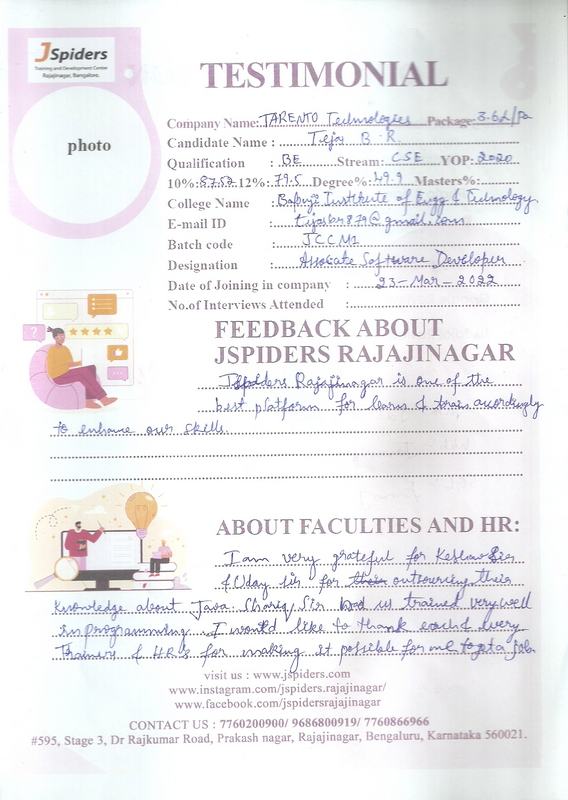 JSpiders
Training and Development Center
Rajajinagar, Bangalore.
TESTIMONIAL
photo
Company Name: TARENTO Technologies Package: 3.6L/Pa
Candidate Name : Tejas B R
Qualification : BE Stream: CSE YOP: 2020
10%: 87.52 12%: 79.5 Degree%: 49.9 Masters%:
College Name : Bapuji Institute of Engg & Technology
E-mail ID : tejasbr879@gmail.com
Batch code : JCCM1
Designation : Associate Software Developer
Date of Joining in company : 23-Mar-2022
No.of Interviews Attended :
FEEDBACK ABOUT
JSPIDERS RAJAJINAGAR
JSpiders Rajajinagar is one of the
best platform for learn & train accordingly
to enhance our skills.
ABOUT FACULTIES AND HR:
I am very grateful for Keshav Sir
& Uday Sir for outsourcing their
knowledge about Java. Sir had us trained very well
in programming. I would like to thank each & every
Trainers & HR's for making it possible for me to get a job
visit us : www.jspiders.com
www.instagram.com/jspiders.rajajinagar/
www.facebook.com/jspidersrajajinagar
CONTACT US : 7760200900/ 9686800919/ 7760866966
#595, Stage 3, Dr Rajkumar Road, Prakash nagar, Rajajinagar, Bengaluru, Karnataka 560021.